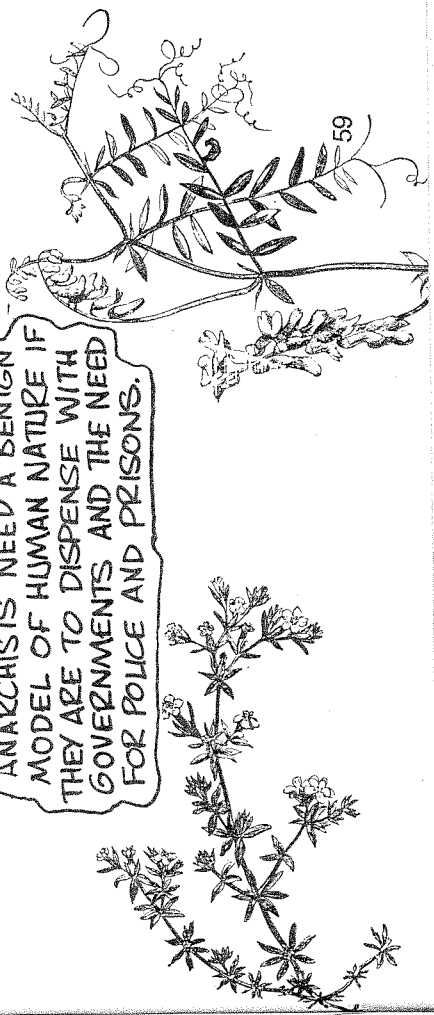 ANARCHISTS NEED A BENIGN
MODEL OF HUMAN NATURE IF
THEY ARE TO DISPENSE WITH
GOVERNMENTS AND THE NEED
FOR POLICE AND PRISONS.
59